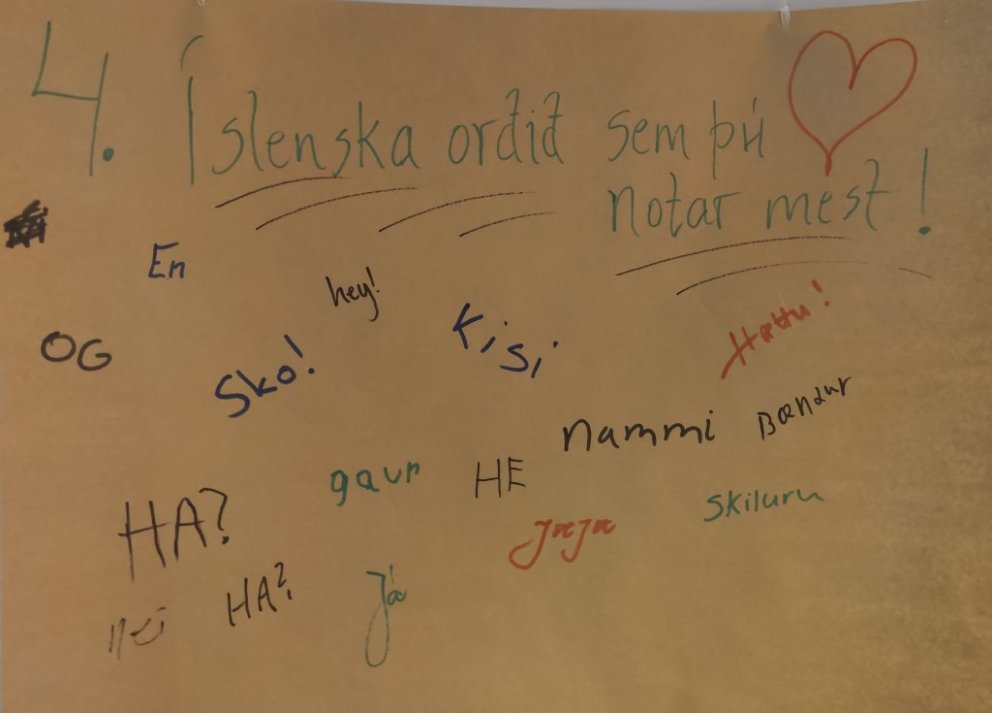 4. Íslenska orðið sem þú
notar mest!
En
hey!
OG
Sko!
Kisi
Hættu!
nammi
Bændur
gaur
HE
HA?
Skiluru
Jæja
nei
HA?
Já